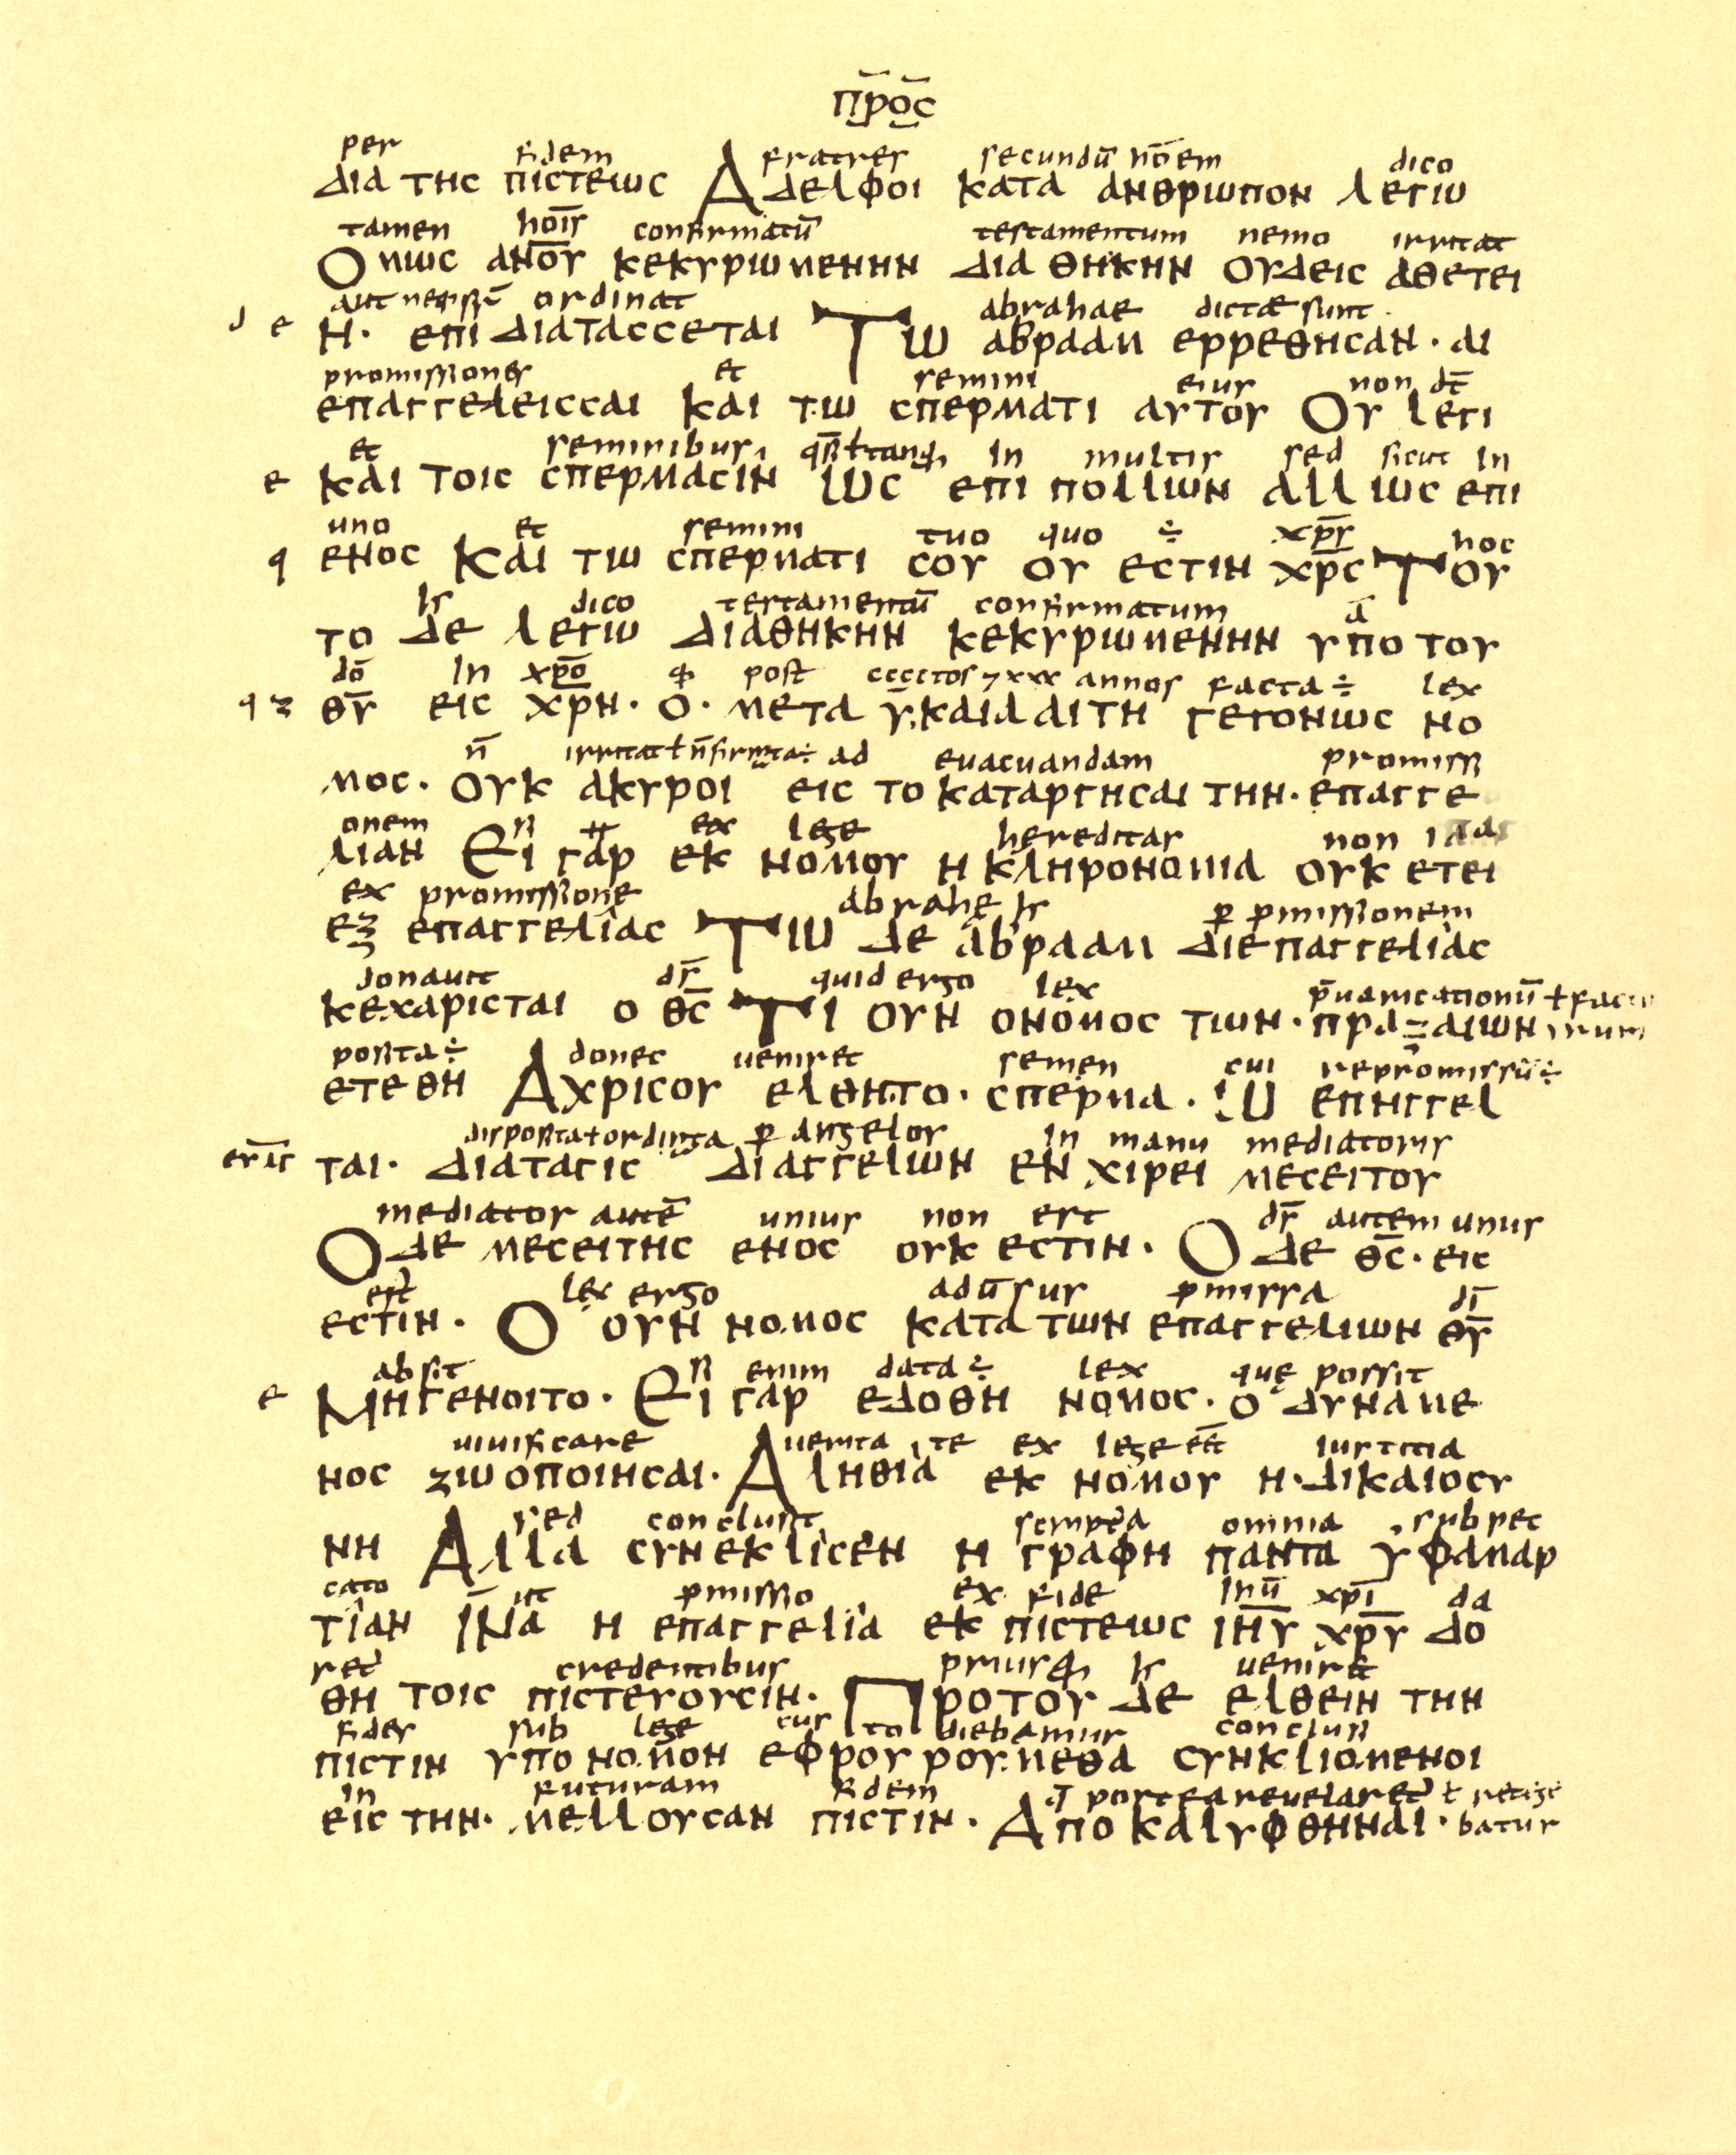 π̅ρο̅ς
per fidem fratres secundū hōem dico
δια της πιστεως Αδελφοι κατα ανθρωπον λεγω
tamen hoīs confirmatū testamentum nemo irritat
Ομως ανο̅υ κεκυρωμενην διαθηκην ουδεις αθετει
aut ordinat abrahae dictae sunt
η· επιδιατασσεται Τω αβρααμ ερρεθησαν· αι
promissiones et semini eius non dc̄
επαγγελεισσαι και τω σπερματι αυτου Ου λεγι
et seminibus in multis sed sicut in
ε και τοις σπερμασιν ως επι πολλων αλλ ως επι
uno et semini tuo quo ÷ xp̄s hoc
q ενος Και τω σπερματι σου ου εστιν χρ̅ς Του
dico testamentū confirmatum a
το δε λεγω διαθηκην κεκυρωμενην υπο του
dō in xp̄o post cccctos 7 xxx annos facta ÷ lex
θυ̅ εις χρ̅ν· ο· μετα υ·και λ αιτη γεγονως νο
n̄ irritat ł ad evacuandam promiss
μος· ουκ ακυροι εις το καταργησαι την· επαγγε
onem ex lege hereditas non
λιαν Ει γαρ εκ νομου η κληρονομια ουκ ετει
ex promissione abrahę p pmissionem
εξ επαγγελιας Τω δε αβρααμ διεπαγγελιας
donavit ds̄ quid ergo lex p̄varicationū
κεχαρισται ο θς̅ Τι ουν ονομος των· πραξαιων
posita ÷ donec veniret semen cui repromissū ÷
ετεθη Αχρισου ελθητο· σπερμα· Ω επηγγελ
disposita ł p angelos in manu mediatoris
ται· διαταγις διαγγελων εν χιρει μεσειτου
mediator autē unius non est ds̄ autem unus
Οδε μεσειτης ενος ουκ εστιν· Ο δε θς̅· εις
est lex ergo adūsus pmissa dī
εστιν· Ο ουν νομος κατα των επαγγελιων θυ̅
absit si enim data ÷ lex quę possit
ε Μηγενοιτο· Ει γαρ εδοθη νομος· ο δυναμε
vivificare verita te ex lege eēt iustitia
νος ζωοποιησαι· Αληθια εκ νομου η·δικαιοσυ
sed conclusit omnia sub pec
νη Αλλα συνεκλισεν η γραφη παντα υφαμαρ
cato ut pmisso ex fide ihū xp̄i da
τιαν ϊνα η επαγγελια εκ πιστεως ιηυ̅ χρυ̅ δο
ret credentibus priusq veniret
θη τοις πιστευουσιν· Προτου δε ελθειν την
fides sub lege cus to diebamur conclusi
πιστιν υπο νομον εφρουρουμεθα συνκλιομενοι
in futuram fidem postea revelaret ł retige
εις την· μελλουσαν πιστιν· Αποκαλυφθηναι· batur